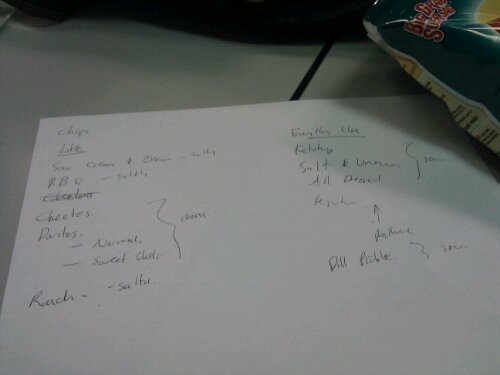 Chips
Like
Sour Cream & Onion - salty
BBQ - salty
Cheetos
Cheetos
Doritos
- Normal
- Sweet Chili
cheese
Ranch - salty
Everything Else
Ketchup
Salt & Vinegar
All Dressed
sour
Regular
Dill Pickle
sour